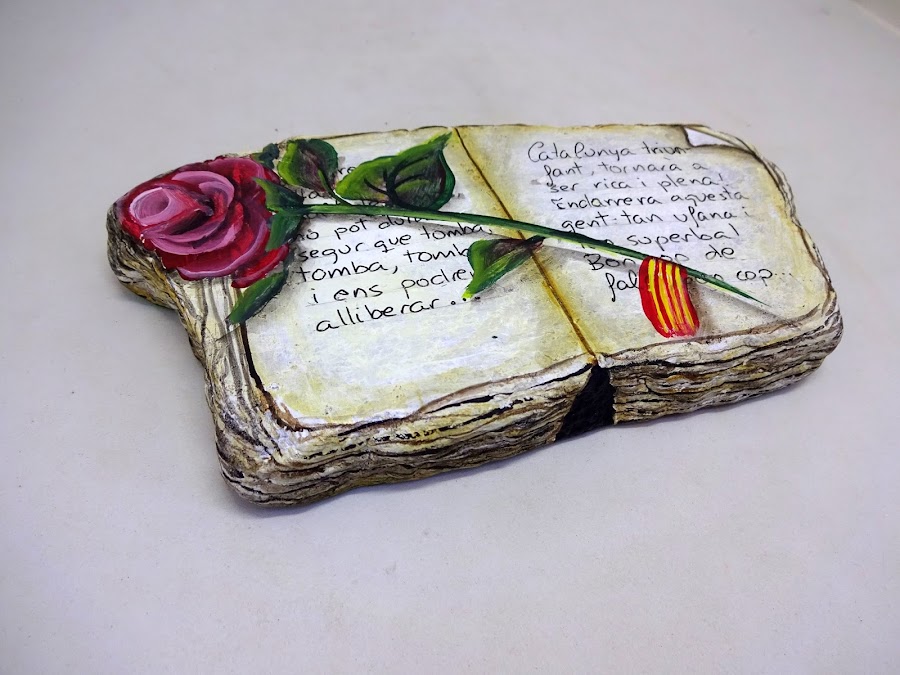 no pot dura
segur que tomba,
tomba, tomba
i ens podre
alliberar...
Catalunya triun-
fant, tornarà a
ser rica i plena!
Endarrera aquesta
gent tan ufana i
superba!
Bon de
fal cop...